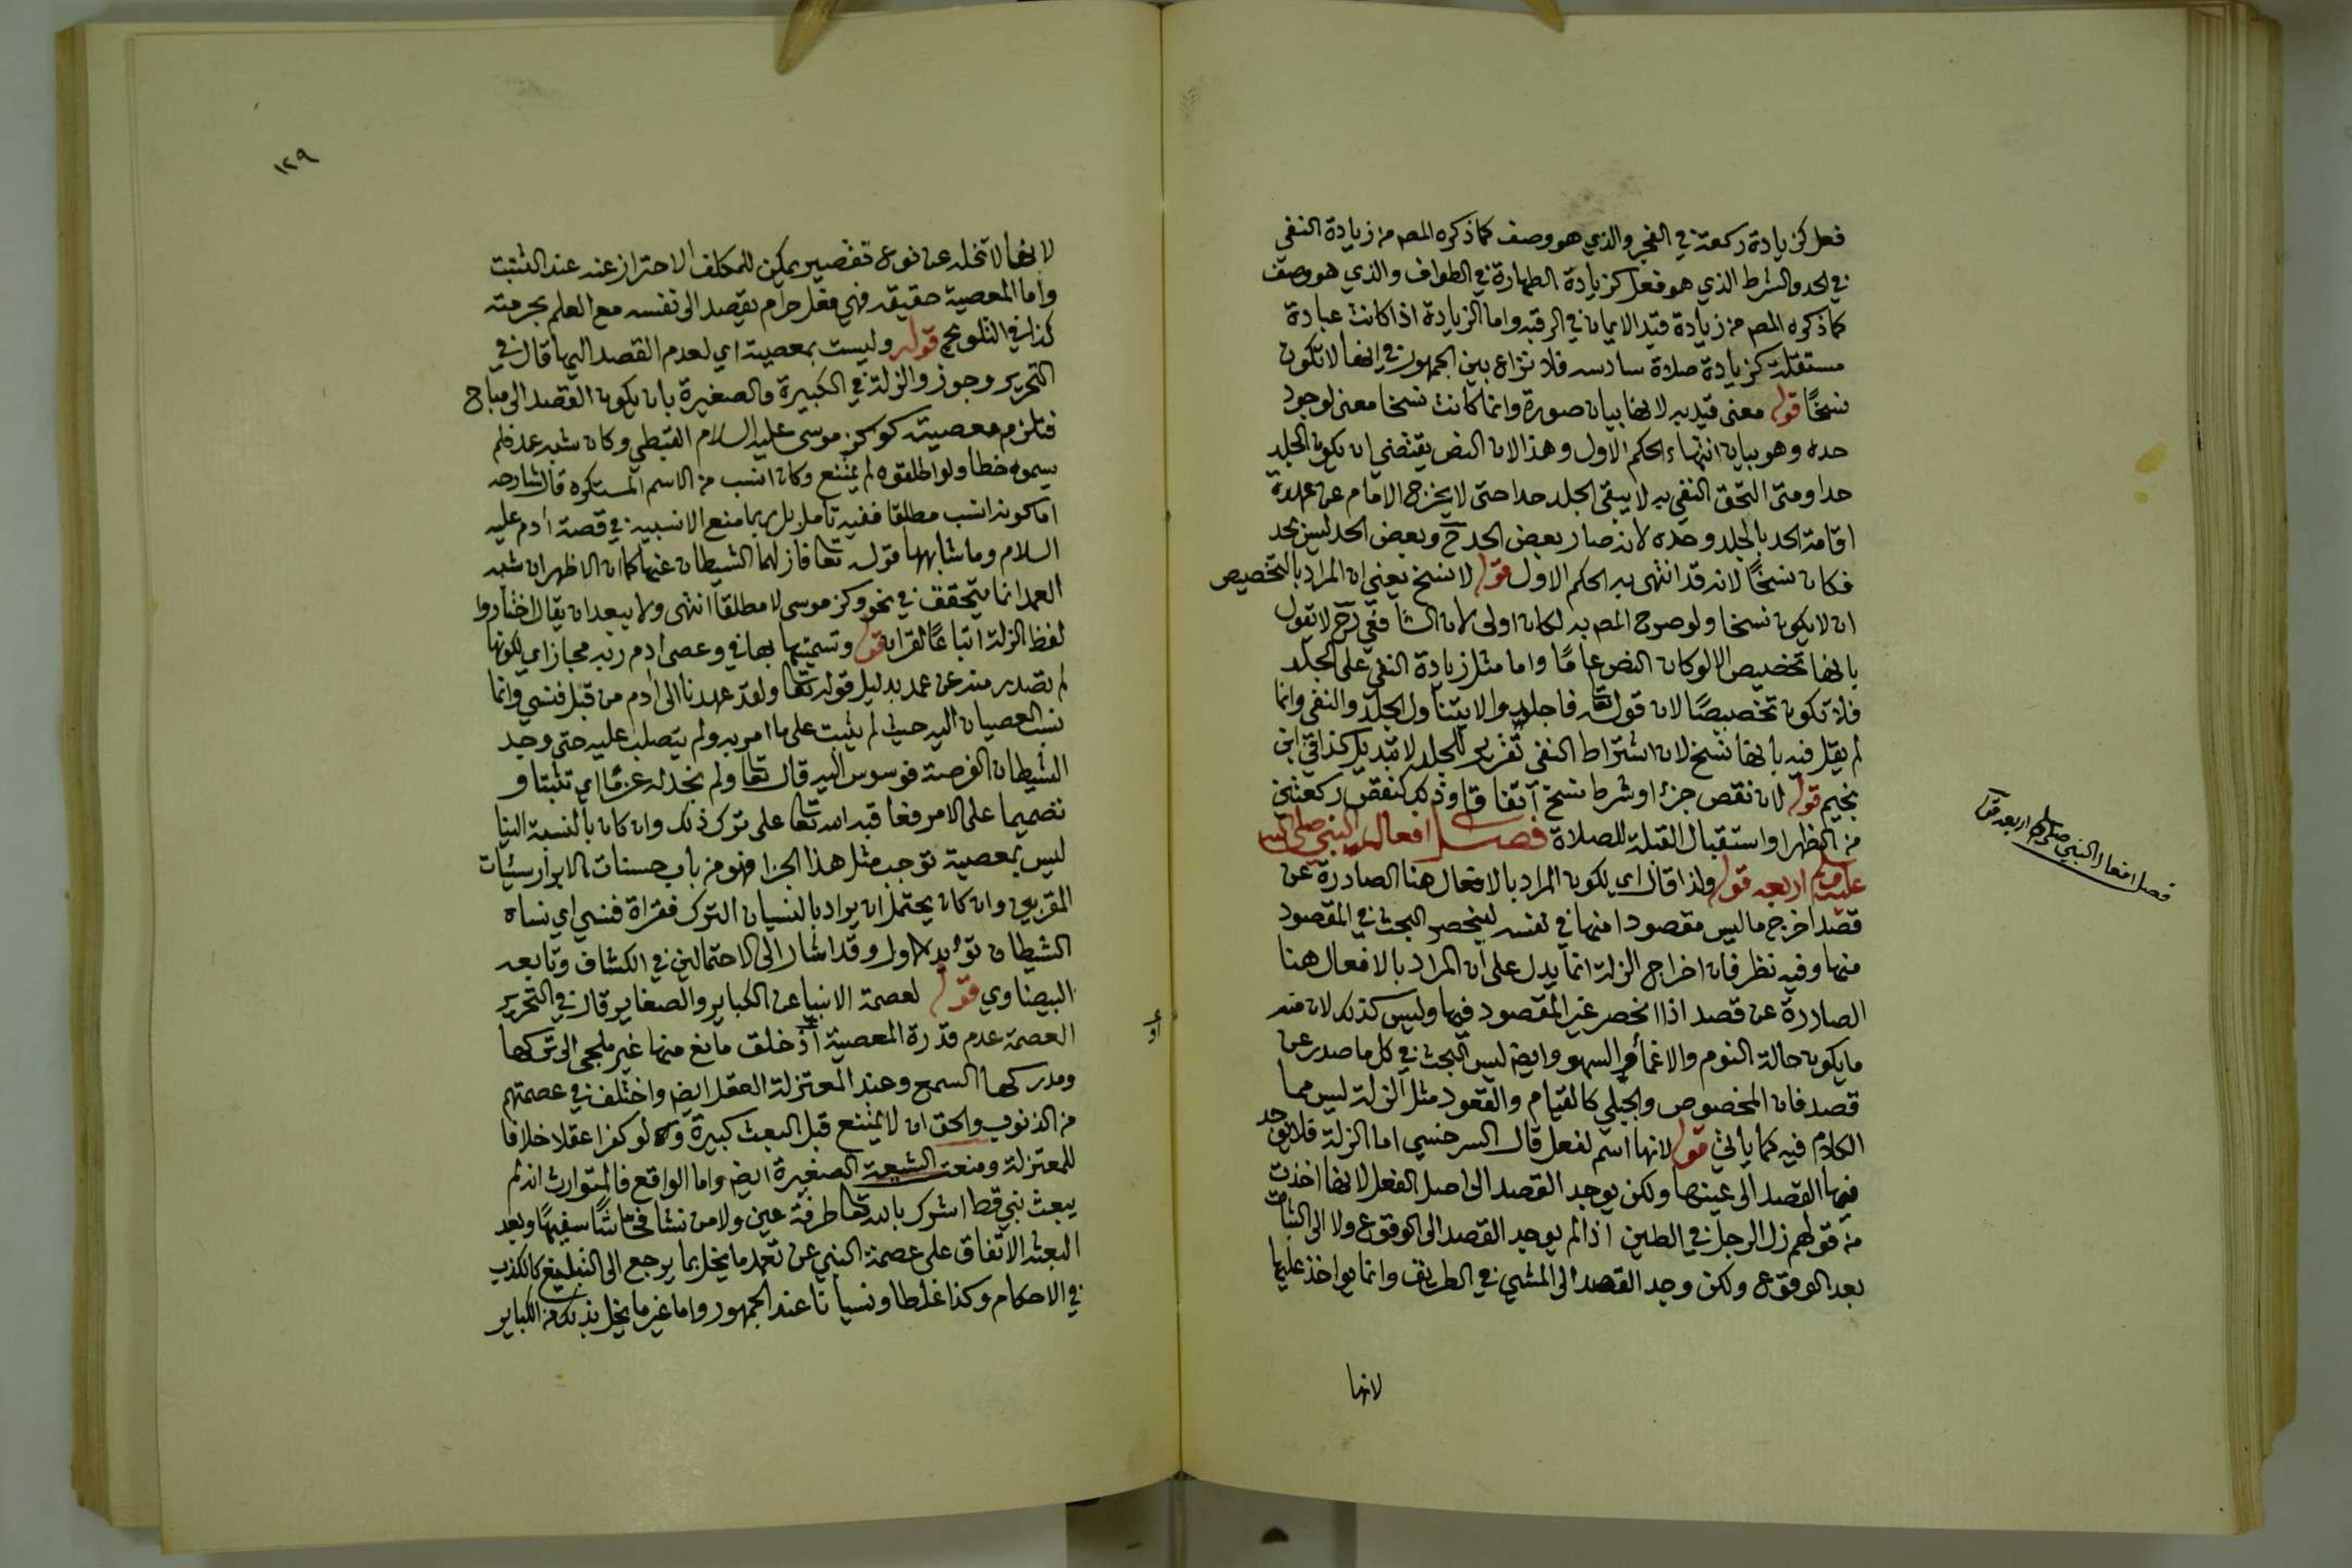 فعل كزيادة ركعة في الفجر والذي هو وصف كما ذكره المصـ من زيادة النفي
في الحد والشرط الذي هو فعل كزيادة الطهارة في الطواف والذي هو وصف
كما ذكره المصـ من زيادة قيد الايمان في الرقبة واما الزيادة اذا كانت عبادة
مستقلة كزيادة صلاة سادسه فلا نزاع بين الجمهور في انها لا تكون
نسخًا قوله معنى قيد به لانها بيان صورة وانما كانت نسخا معنى لوجود
حده وهو بيان انتهاء الحكم الاول وهذا لان النص يقتضي ان يكون الجلد
حدا ومتى التحق النفي به لا يبقى الجلد حدا حتى لا يخرج الامام عن عهدة
اقامة الحد بالجلد وحده لانه صار بعض الحد ح وبعض الحد ليس بحد
فكان نسخًا لانه قد انتهى به الحكم الاول قوله لا نسخ يعني ان المراد بالتخصيص
ان لا يكون نسخا ولو صرح المصـ به لكان اولى لان الشافعي رح لا يقول
بانها تخصيص الا لو كان النص عامًا واما مثل زيادة النفي على الجلد
فلا تكون تخصيصًا لان قوله تعا فاجلدوا لا يتناول الجلد والنفي وانما
لم يقل فيه بانها نسخ لان اشتراط النفي تقرير للجلد لا تبديل كذا في ابن
نجيم قوله لان نقص جزء او شرط نسخ اتفاقا وذلك كنقص ركعتين
من الظهر او استقبال القبلة للصلاة فصل افعال النبي صلى الله
عليه وسلم اربعه قوله ولذا قال اي لكون المراد بالافعال هنا الصادرة عن
قصد اخرج ما ليس مقصودا منها في نفسه لينحصر البحث في المقصود
منها وفيه نظر فان اخراج الزلة انما يدل على ان المراد بالافعال هنا
الصادرة عن قصد اذا انحصر غير المقصود فيها وليس كذلك لان منه
ما يكون حالة النوم والاغماء والسهو وايضا ليس البحث في كل ما صدر عن
قصد فان المخصوص والجبلي كالقيام والقعود مثل الزلة ليس مما
الكلام فيه كما ياتي قوله لانها اسم لفعل قال السرخسي اما الزلة فلا يوجد
فيها القصد الى عينها ولكن يوجد القصد الى اصل الفعل لانها اخذت
من قولهم زل الرجل في الطين اذا لم يوجد القصد الى الوقوع ولا الى الثبات
بعد الوقوع ولكن وجد القصد الى المشي في الطريق وانما يواخذ عليها
لانها
فصل افعال النبي صلى اربعه
١٢٩
لانها لا تخلو عن نوع تقصير يمكن للمكلف الاحتراز عنه عند التثبت
واما المعصية حقيقه فهي فعل حرام يقصد الى نفسه مع العلم بحرمته
كذا في التلويح قوله وليست بمعصية اي لعدم القصد اليها قال في
التحرير وجوز والزلة في الكبيرة والصغيرة بان يكون القصد الى مباح
فتلزم معصية كوكز موسى عليه السلام القبطي وكان شبه عمد فلم
يسموه خطا ولو اطلقوه لم يمتنع وكان انسب من الاسم المستكره قال شارحه
اما كونه انسب مطلقا ففيه تامل بل ربما منع الانسبية في قصة ادم عليه
السلام وما شابهها قوله تعا فازلهما الشيطان عنها كما ان الاظهر ان شبه
العمد انما يتحقق في نحو وكز موسى لا مطلقا انتهى ولا يبعد ان يقال اختاروا
لفظ الزلة اتباعًا للقران قوله وتسميتها بها في وعصى ادم ربه مجاز اي لكونها
لم تصدر منه عن عمد بدليل قوله تعا ولقد عهدنا الى ادم من قبل فنسي وانما
نسب العصيان اليه حيث لم يثبت على ما امر به ولم يتصلب عليه حتى وجد
الشيطان الفرصة فوسوس اليه قال تعا ولم نجد له عزمًا اي تثبتا و
تصميما على الامر فعاقبه الله تعا على ترك ذلك وان كان بالنسبة الينا
ليس بمعصية توجب مثل هذا الجزا فهو من باب حسنات الابرار سيئات
المقربين وان كان يحتمل ان يراد بالنسيان الترك فقراة فنسي اي نساه
الشيطان تويد الاول وقد اشار الى الاحتمالين في الكشاف وتابعه
البيضاوي قوله لعصمة الانبيا عن الكباير والصغاير قال في التحرير
العصمة عدم قدرة المعصية او خلق مانع منها غير ملجئ الى تركها
ومدركها السمع وعند المعتزلة العقل ايضا واختلف في عصمتهم
من الذنوب والحق ان لا يمتنع قبل البعث كبيرة ولو كفرا عقلا خلافا
للمعتزلة ومنعت الشيعة الصغيرة ايضا واما الواقع فالمتوارث انه لم
يبعث نبي قط اشرك بالله تعا طرفة عين ولا من نشا فحاشًا سفيهًا وبعد
البعث الاتفاق على عصمة النبي عن تعمد ما يخل بما يرجع الى التبليغ كالكذب
في الاحكام وكذا غلطا ونسيانا عند الجمهور واما غير ما يخل بذلك من الكباير